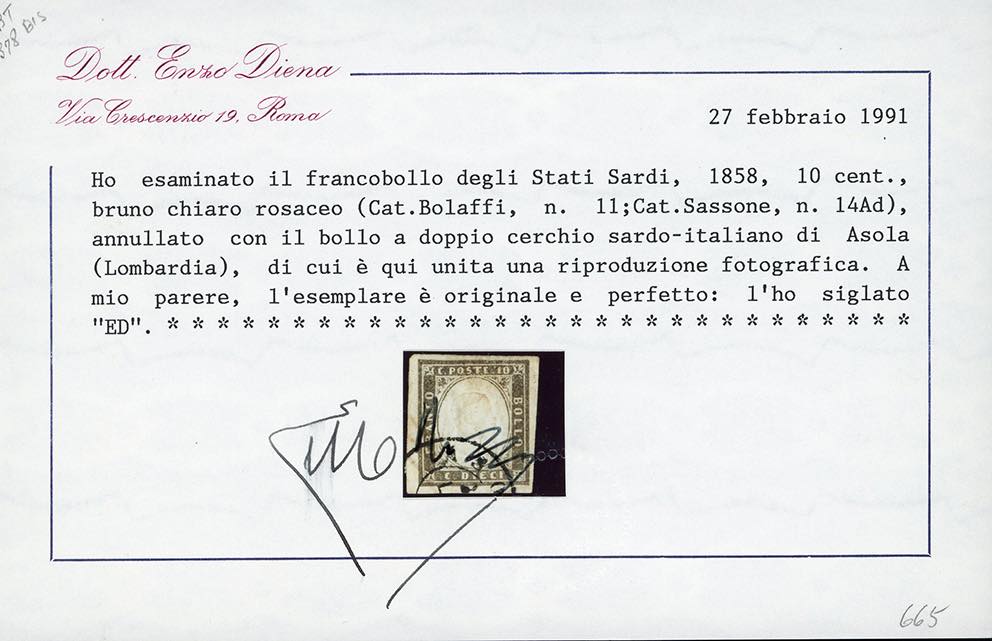 378 BIS
Dott. Enzo Diena
Via Crescenzio 19, Roma
27 febbraio 1991
Ho esaminato il francobollo degli Stati Sardi, 1858, 10 cent.,
bruno chiaro rosaceo (Cat.Bolaffi, n. 11;Cat.Sassone, n. 14Ad),
annullato con il bollo a doppio cerchio sardo-italiano di Asola
(Lombardia), di cui è qui unita una riproduzione fotografica. A
mio parere, l'esemplare è originale e perfetto: l'ho siglato
"ED". * * * * * * * * * * * * * * * * * * * * * * * * * * * * * *
C. POSTE 10
BOLLO
C. DIECI
665